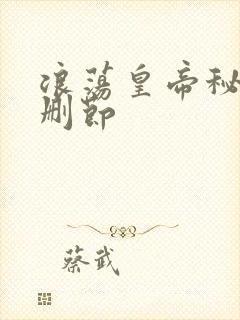 浪荡皇帝秘
删节
蔡武